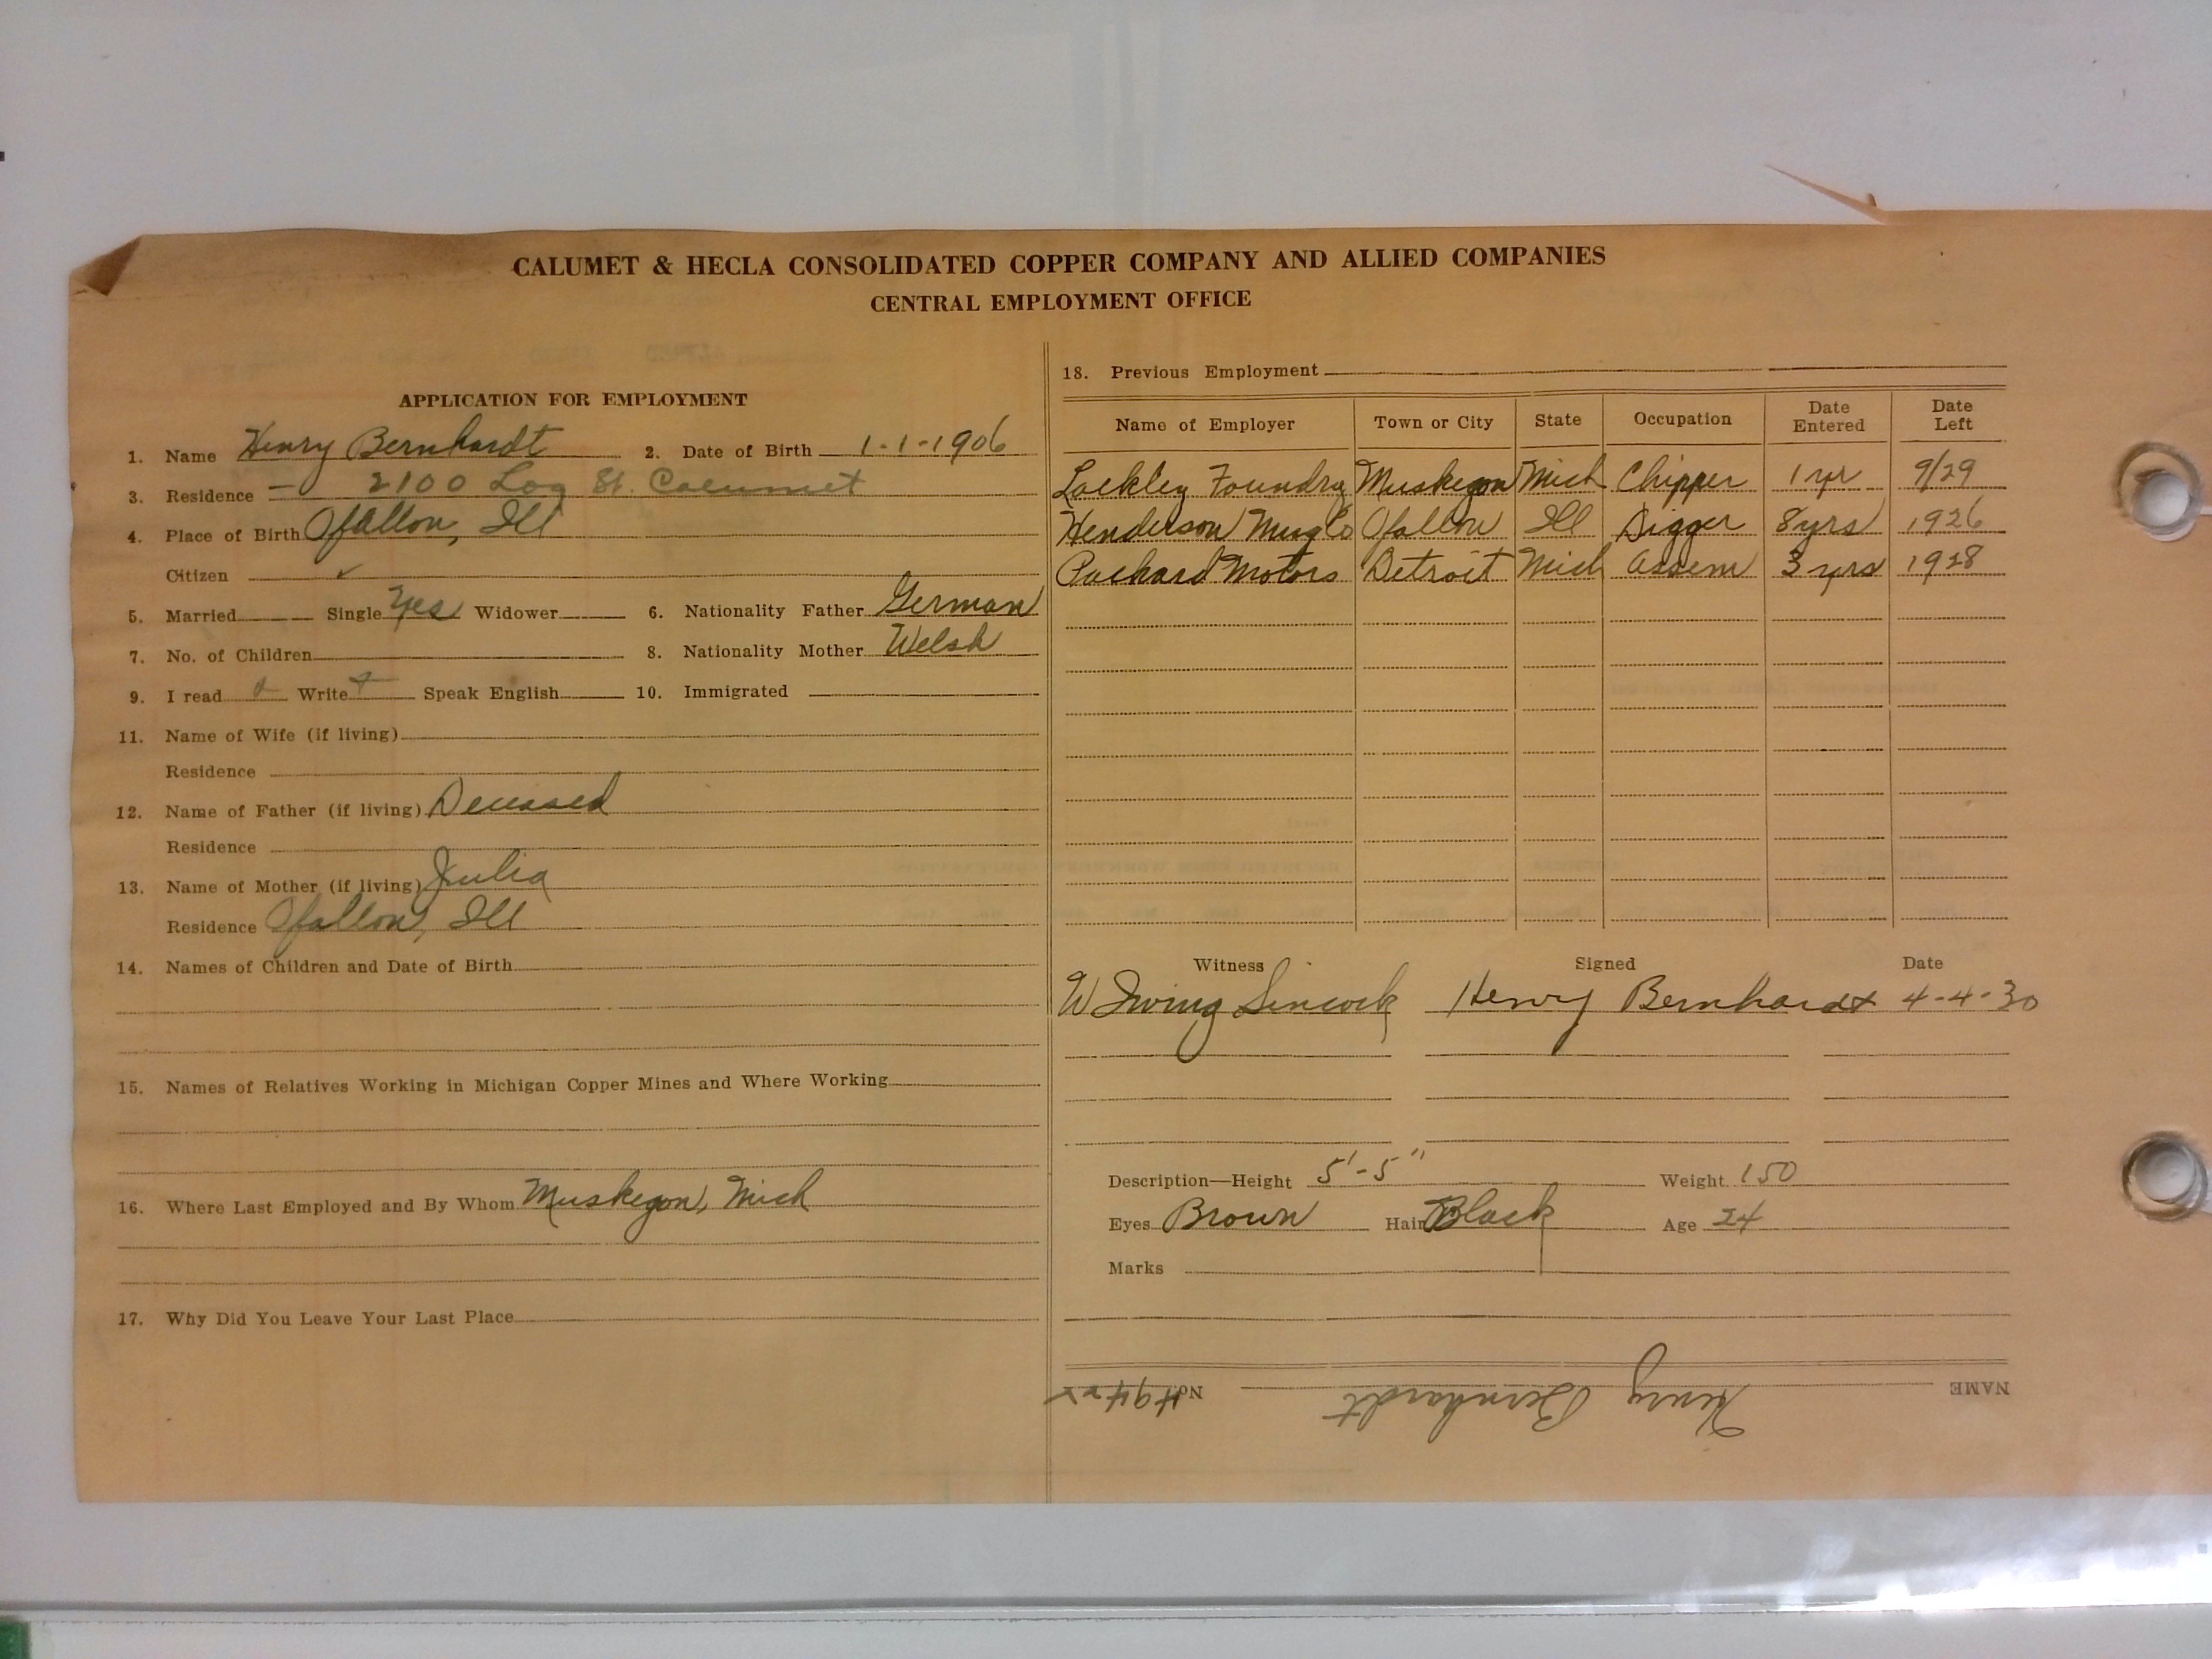 CALUMET & HECLA CONSOLIDATED COPPER COMPANY AND ALLIED COMPANIES
CENTRAL EMPLOYMENT OFFICE
APPLICATION FOR EMPLOYMENT
1. Name Henry Bernhardt 2. Date of Birth 1-1-1906
3. Residence - 2100 Log St. Calumet
4. Place of Birth Ofallon, Ill
Citizen ✓
5. Married Single Yes Widower 6. Nationality Father German
7. No. of Children 8. Nationality Mother Welsh
9. I read Write Speak English 10. Immigrated
11. Name of Wife (if living)
Residence
12. Name of Father (if living) Deceased
Residence
13. Name of Mother (if living) Julia
Residence Ofallon, Ill
14. Names of Children and Date of Birth
15. Names of Relatives Working in Michigan Copper Mines and Where Working
16. Where Last Employed and By Whom Muskegon, Mich
17. Why Did You Leave Your Last Place
18. Previous Employment
Name of Employer Town or City State Occupation Date Entered Date Left
Lackley Foundry Muskegon Mich Chipper 1 yr 9/29
Henderson Ofallon Ill Digger 8 yrs 1926
Packard Motors Detroit Mich Assem 3 yrs 1928
Witness Signed Date
W Irving Sincock Henry Bernhardt 4-4-30
Description—Height 5'-5" Weight 150
Eyes Brown Hair Black Age 24
Marks
NAME Henry Bernhardt No.